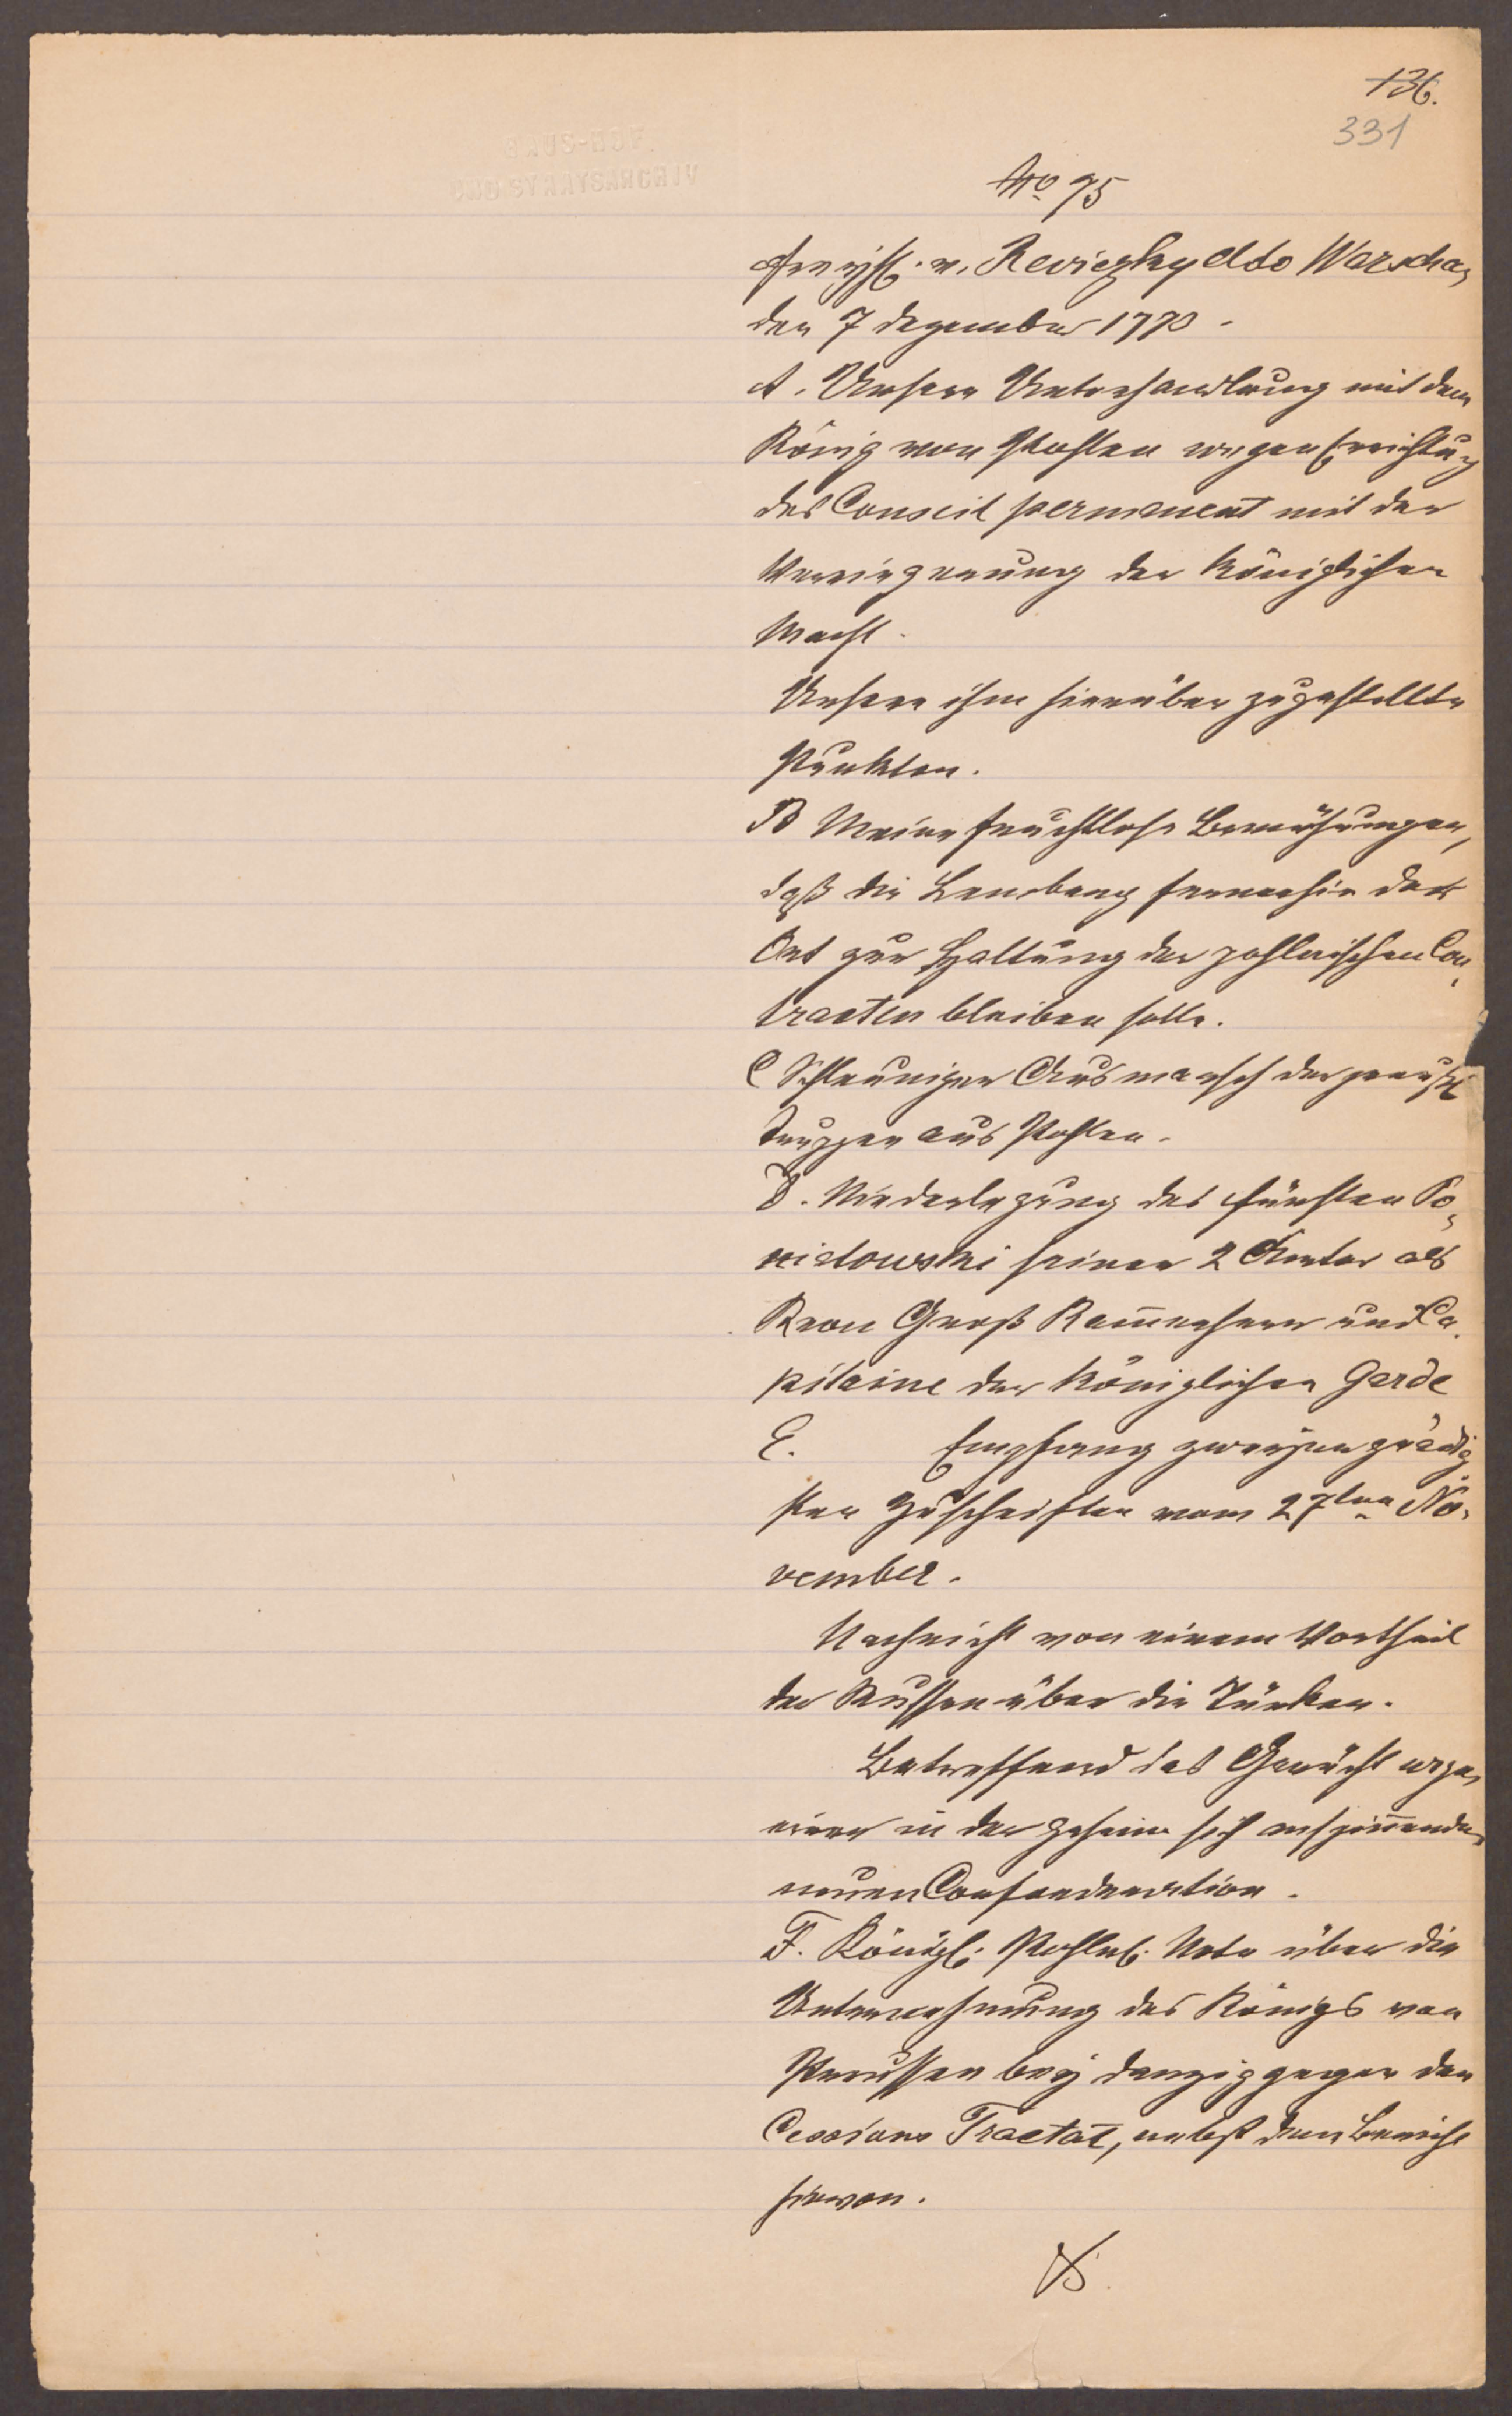 136.
331
HAUS-HOF.
UND STAATSARCHIV
No 75
Freyh. v. Reviezky ddo Warschau
den 7 Dezember 1773.
A. Unsere Unterhandlung mit dem
König von Pohlen wegen Errichtung
des Conseil permanent mit der
Verringerung der königlichen
Macht.
Unsere ihm hierüber zugestellte
Punkten.
B Meine fruchtlose Bemühungen,
daß die Lemberg fernerhin der
Ort zur Haltung der pohlnischen Con,
tracten bleiben solle.
C Schleuniger Ausmarsch der preuß
Truppen aus Pohlen.
D. Niederlegung des Fürsten Po,
niatowski seiner 2 Ämter als
Kron Groß Kam̄erherr und Ca,
pitaine der königlichen Garde
E. Empfang zweyer gnädig
sten Zuschriften vom 27ten No,
vember.
Nachricht von einem Vortheil
der Russen über die Türken.
Betreffend das Gerücht wegen
einer in der geheim sich anspin̄enden
neuen Confoederation.
F. Königl. Pohln. Note über die
Unternehmung des Königs von
Preussen bey Danzig gegen den
Cessions Tractat, nebst dem Bericht
hievon.